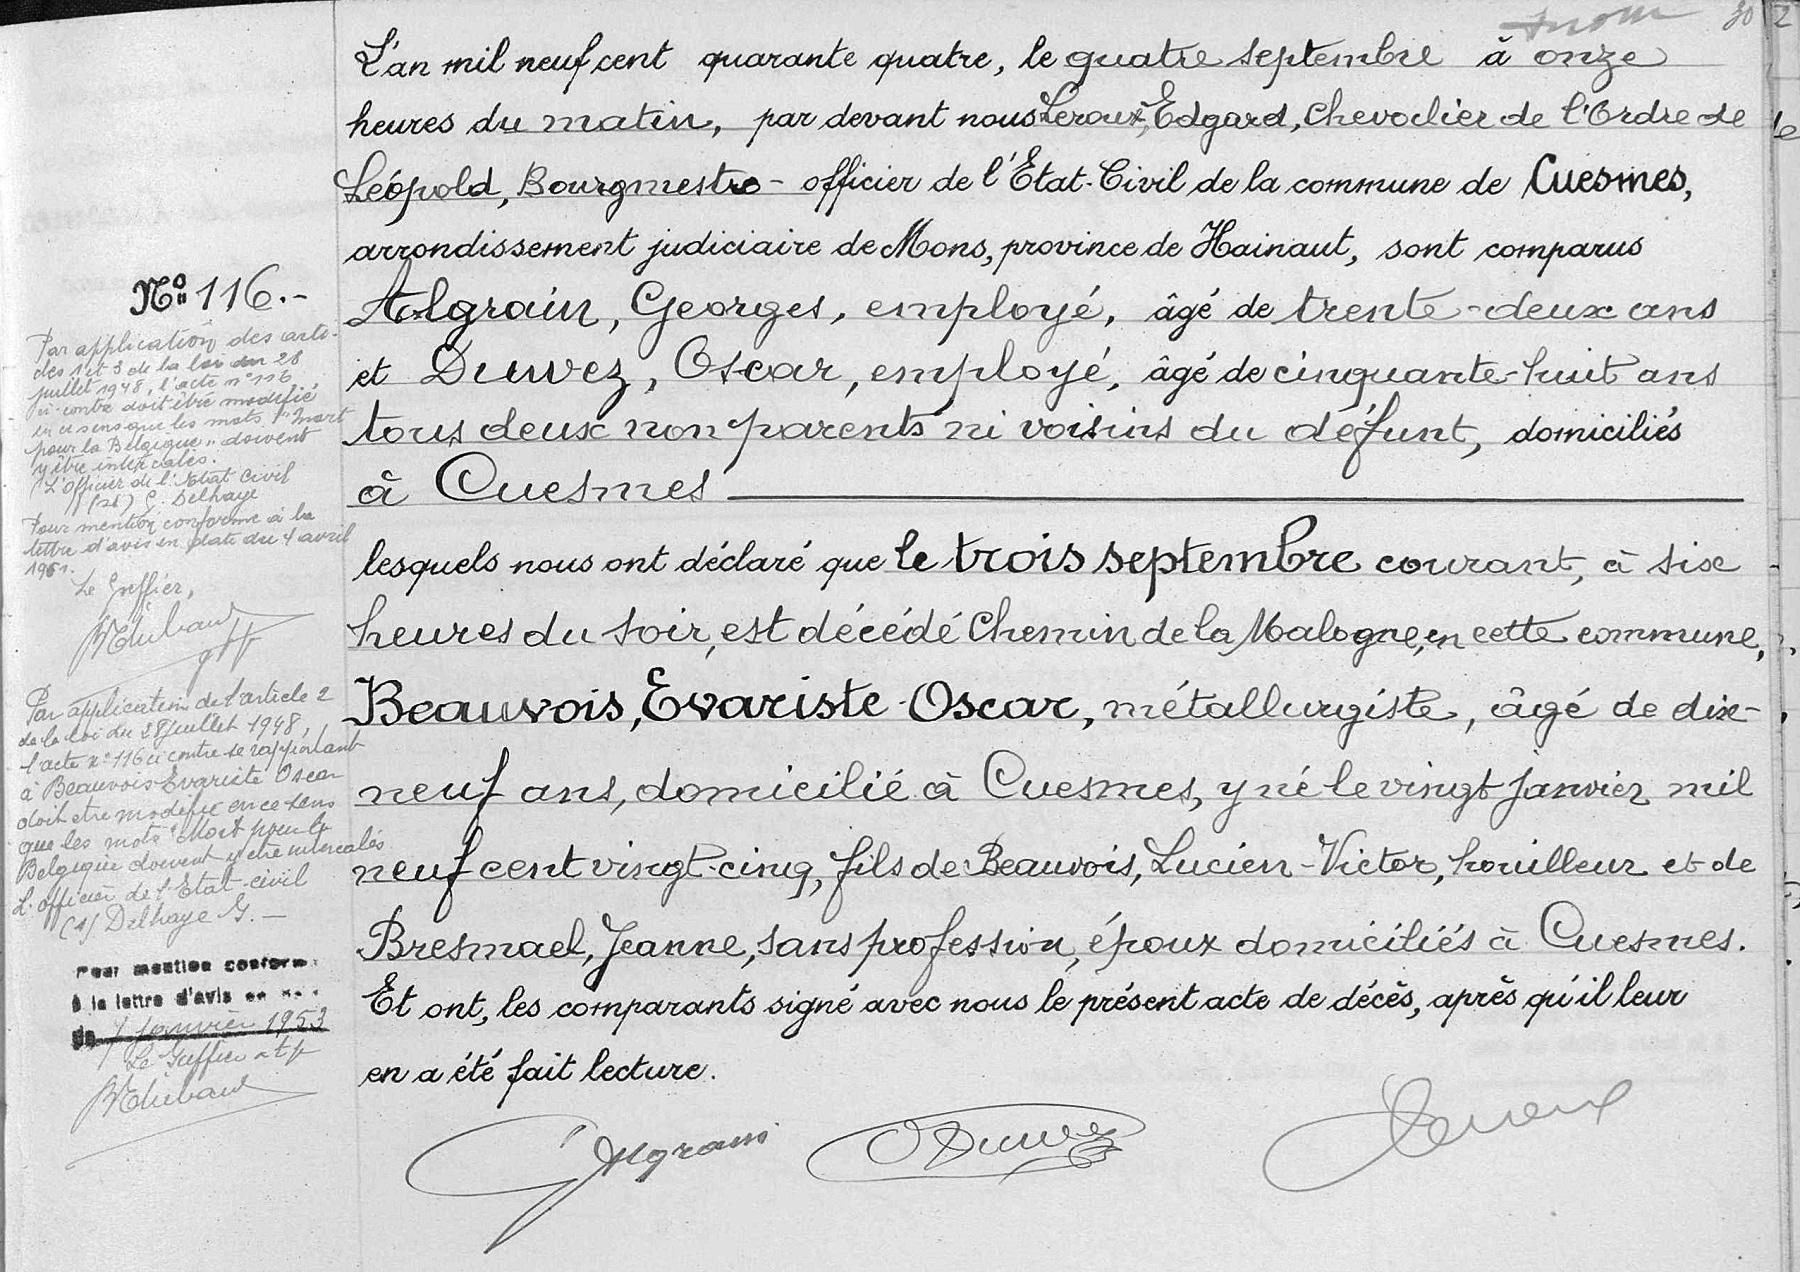 30
2
L'an mil neuf cent quarante quatre, le quatre septembre à onze
heures du matin, par devant nous Leroux, Edgard, Chevalier de l'Ordre de
Léopold, Bourgmestre - officier de l'Etat-Civil de la commune de Cuesmes,
arrondissement judiciaire de Mons, province de Hainaut, sont comparus
Algrain, Georges, employé, âgé de trente-deux ans
et Duvvez, Oscar, employé, âgé de cinquante-huit ans
tous deux non parents ni voisins du défunt, domiciliés
à Cuesmes
lesquels nous ont déclaré que le trois septembre courant, à six
heures du soir, est décédé Chemin de la Malogne, en cette commune,
Beauvois, Evariste Oscar, métallurgiste, âgé de dix-
neuf ans, domicilié à Cuesmes, y né le vingt janvier mil
neuf cent vingt-cinq, fils de Beauvois, Lucien-Victor, houilleur et de
Bresmael, Jeanne, sans profession, époux domiciliés à Cuesmes.
Et ont, les comparants signé avec nous le présent acte de décès, après qu'il leur
en a été fait lecture.
Algrain
ODuvvez
Leroux
No 116.-
Par application des arti-
cles 1 et 3 de la loi du 28
juillet 1948, l'acte n° 116
ci-contre doit être modifié
en ce sens que les mots "Mort
pour la Belgique" doivent
y être intercalés.
L'Officier de l'Etat Civil
G. Delhaye
Pour mention conforme à la
lettre d'avis en date du 4 avril
1951.
Le Greffier,
Par application de l'article 2
de la loi du 28 juillet 1948,
l'acte n° 116 ci contre se rapportant
à Beauvois Evariste Oscar
doit etre modifié en ce sens
que les mots "Mort pour la
Belgique doivent y etre intercalés
L'officier de l'Etat-civil
(s) Delhaye G. -
Pour mention conform
à la lettre d'avis en
du 7 janvier 1953
Le Greffier